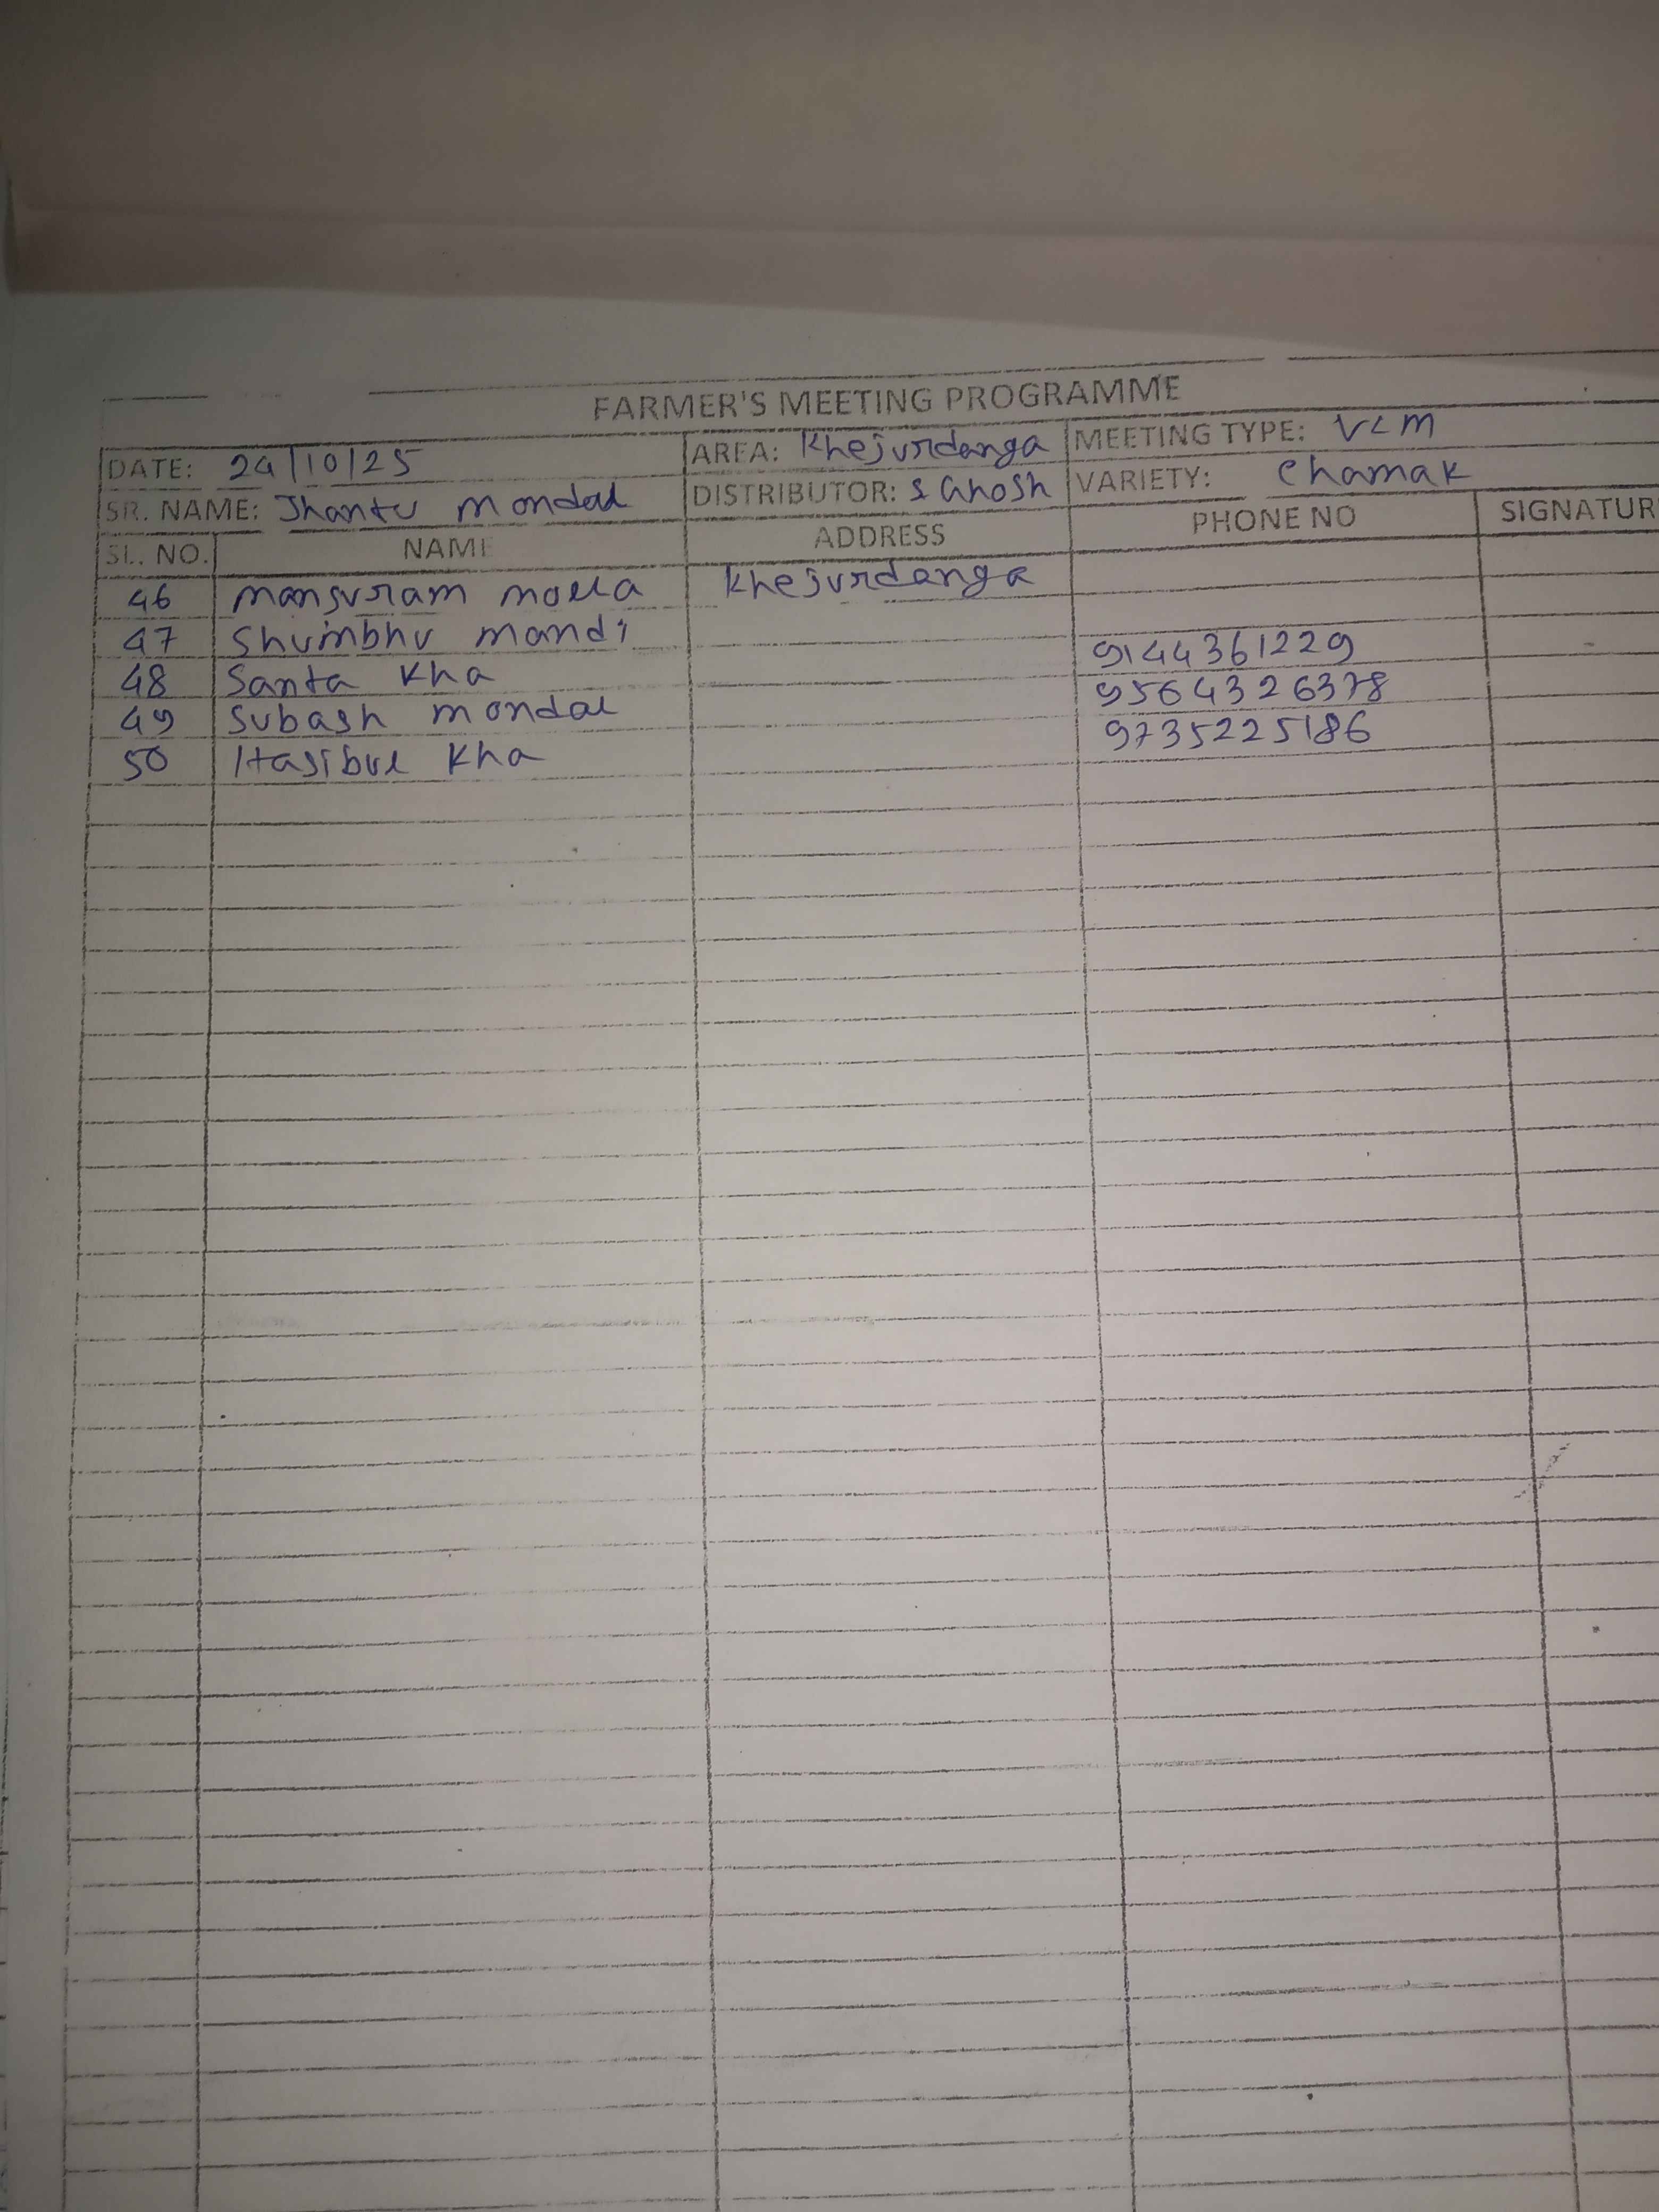 FARMER'S MEETING PROGRAMME
DATE: 24/10/25 AREA: Khejurdanga MEETING TYPE: VLM
SR. NAME: Jhantu mondal DISTRIBUTOR: S Ghosh VARIETY: Chamak
SL. NO. NAME ADDRESS PHONE NO SIGNATUR
46 mansuram molla Khejurdanga
47 Shumbhu mandi
48 Santa Kha 9144361229
49 Subash mondal 9564326378
50 Hasibul Kha 9735225186